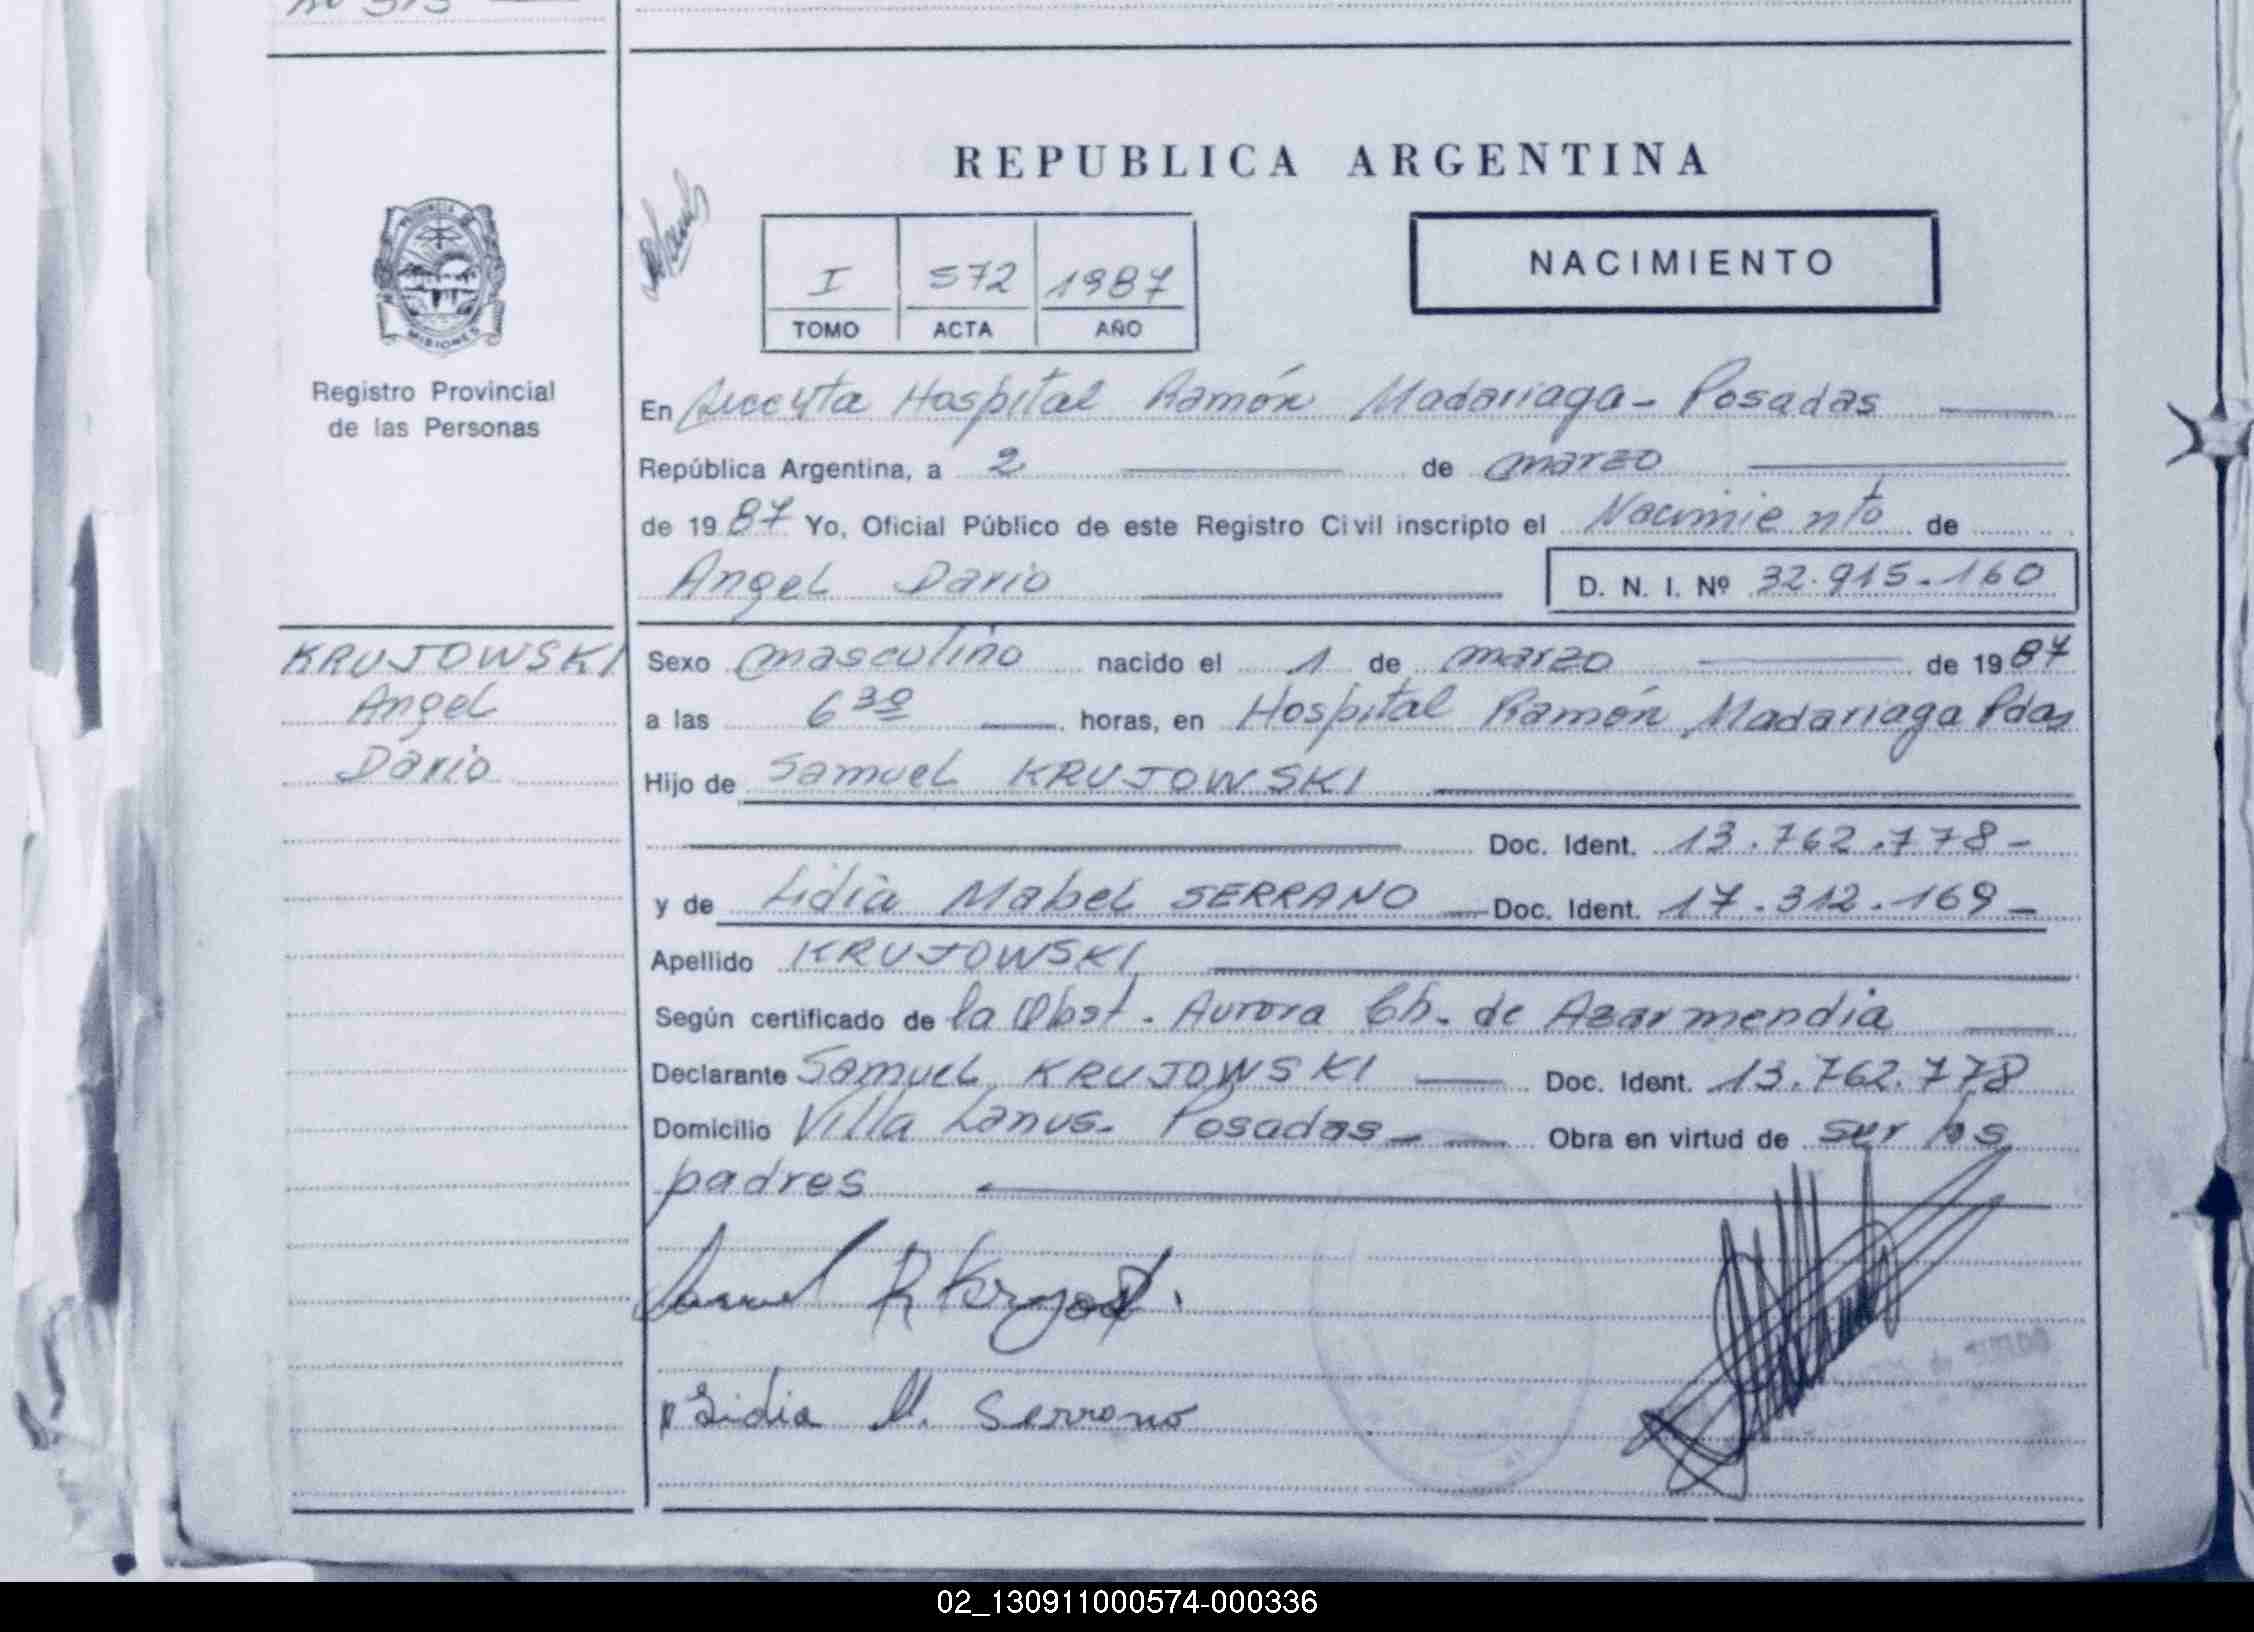 REPUBLICA ARGENTINA
PROVINCIA DE
MISIONES
Registro Provincial
de las Personas
I 572 1987
TOMO ACTA AÑO
NACIMIENTO
En Hospital Ramón Madariaga - Posadas
República Argentina, a 2 de marzo
de 1987 Yo, Oficial Público de este Registro Civil inscripto el Nacimiento de
Angel Dario D. N. I. Nº 32.915.160
KRUJOWSKI
Angel
Dario
Sexo masculino nacido el 1 de marzo de 1987
a las 6 30 horas, en Hospital Ramón Madariaga Pdas
Hijo de Samuel KRUJOWSKI
Doc. Ident. 13.762.778-
y de Lidia Mabel SERRANO Doc. Ident. 17.312.169-
Apellido KRUJOWSKI
Según certificado de la Obst. Aurora Ch. de Azarmendia
Declarante Samuel KRUJOWSKI Doc. Ident. 13.762.778
Domicilio Villa Lanus- Posadas- Obra en virtud de ser los
padres
Lidia M. Serrano
02_130911000574-000336